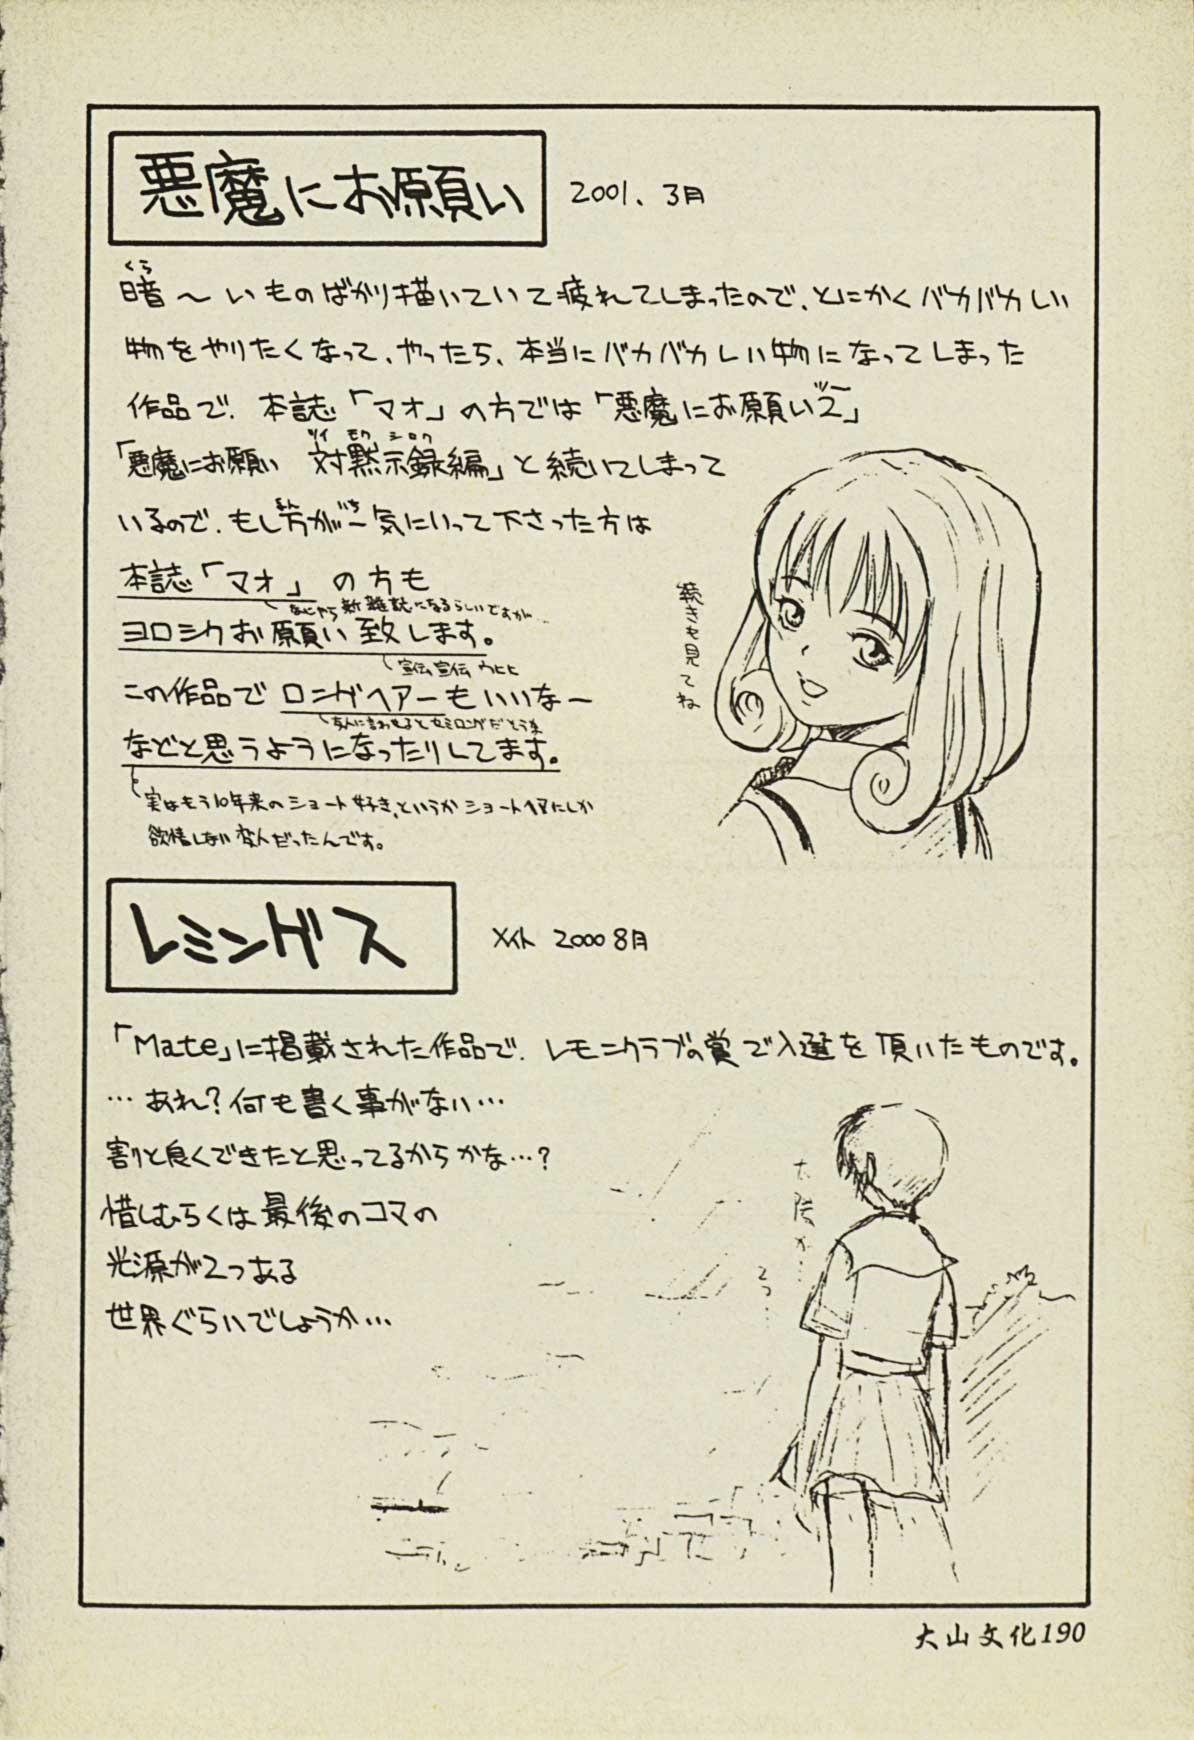 悪魔にお願い
2001、3月
くら
暗〜いものばかり描いていて疲れてしまったので、とにかくバカバカしい
物をやりたくなって、やったら、本当にバカバカしい物になってしまった
作品で、本誌「マオ」の方では「悪魔にお願い2」
ツー
ツイ モク シロク
「悪魔にお願い 対黙示録編」と続いてしまって
いるので、もし万が一気にいって下さった方は
まん いち
本誌「マオ」の方も
新雑誌になるらしいですが…
ヨロシクお願い致します。
宣伝宣伝 ウヒヒ
この作品でロングヘアーもいいなー
友人に言わせるとセミロングだとうま
などと思うようになったりしてます。
実はもう10年来のショート好き、というかショートヘアにしか
欲情しない変人だったんです。
続きも見てね
レミングス
メイト 2000 8月
「Mate」に掲載された作品で、レモンクラブの賞で入選を頂いたものです。
…あれ?何も書く事がない…
割と良くできたと思ってるからかな…?
惜しむらくは最後のコマの
光源が2つある
世界ぐらいでしょうか…
太陽が…
2つ…
大山文化190